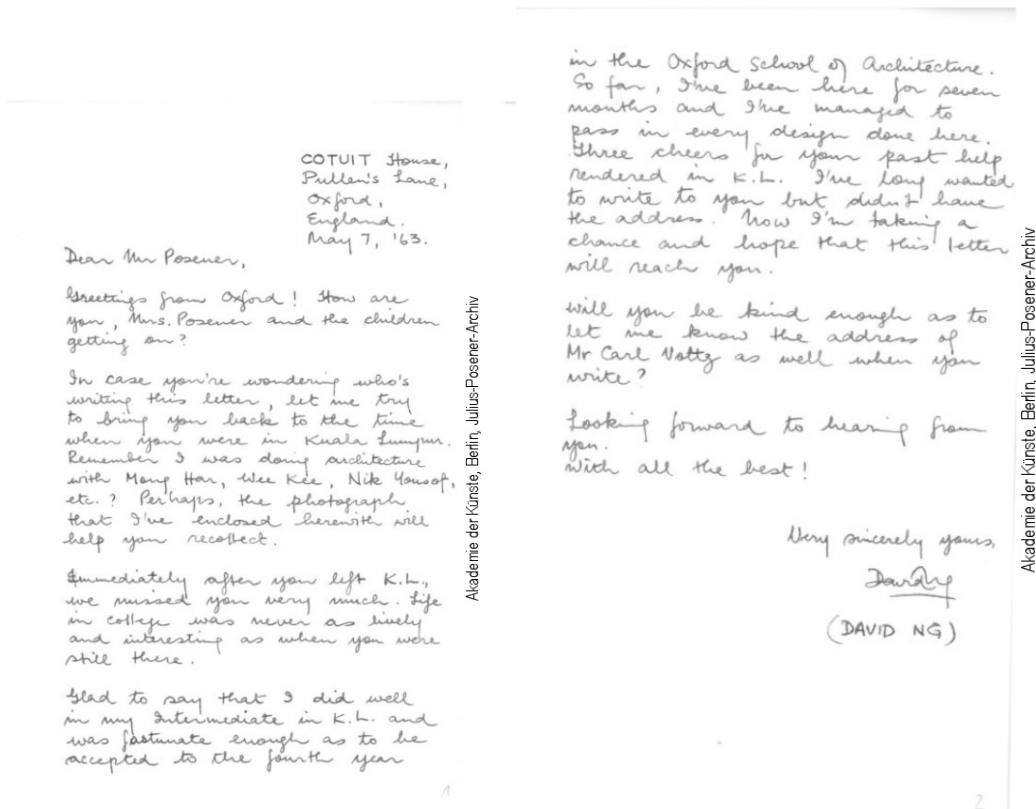 COTUIT House,
Pullen's Lane,
Oxford,
England.
May 7, '63.
Dear Mr Posener,
Greetings from Oxford! How are
you, Mrs. Posener and the children
getting on?
In case you're wondering who's
writing this letter, let me try
to bring you back to the time
when you were in Kuala Lumpur.
Remember I was doing architecture
with Mong Har, Wee Kee, Nik Yousof,
etc.? Perhaps, the photograph
that I've enclosed herewith will
help you recollect.
Immediately after you left K.L.,
we missed you very much. Life
in college was never as lively
and interesting as when you were
still there.
Glad to say that I did well
in my Intermediate in K.L. and
was fortunate enough as to be
accepted to the fourth year
1
Akademie der Künste, Berlin, Julius-Posener-Archiv
in the Oxford School of Architecture.
So far, I've been here for seven
months and I've managed to
pass in every design done here.
Three cheers for your past help
rendered in K.L. I've long wanted
to write to you but didn't have
the address. Now I'm taking a
chance and hope that this letter
will reach you.
Will you be kind enough as to
let me know the address of
Mr Carl Voltz as well when you
write?
Looking forward to hearing from
you.
With all the best!
Very sincerely yours,
David Ng
(DAVID NG)
2
Akademie der Künste, Berlin, Julius-Posener-Archiv